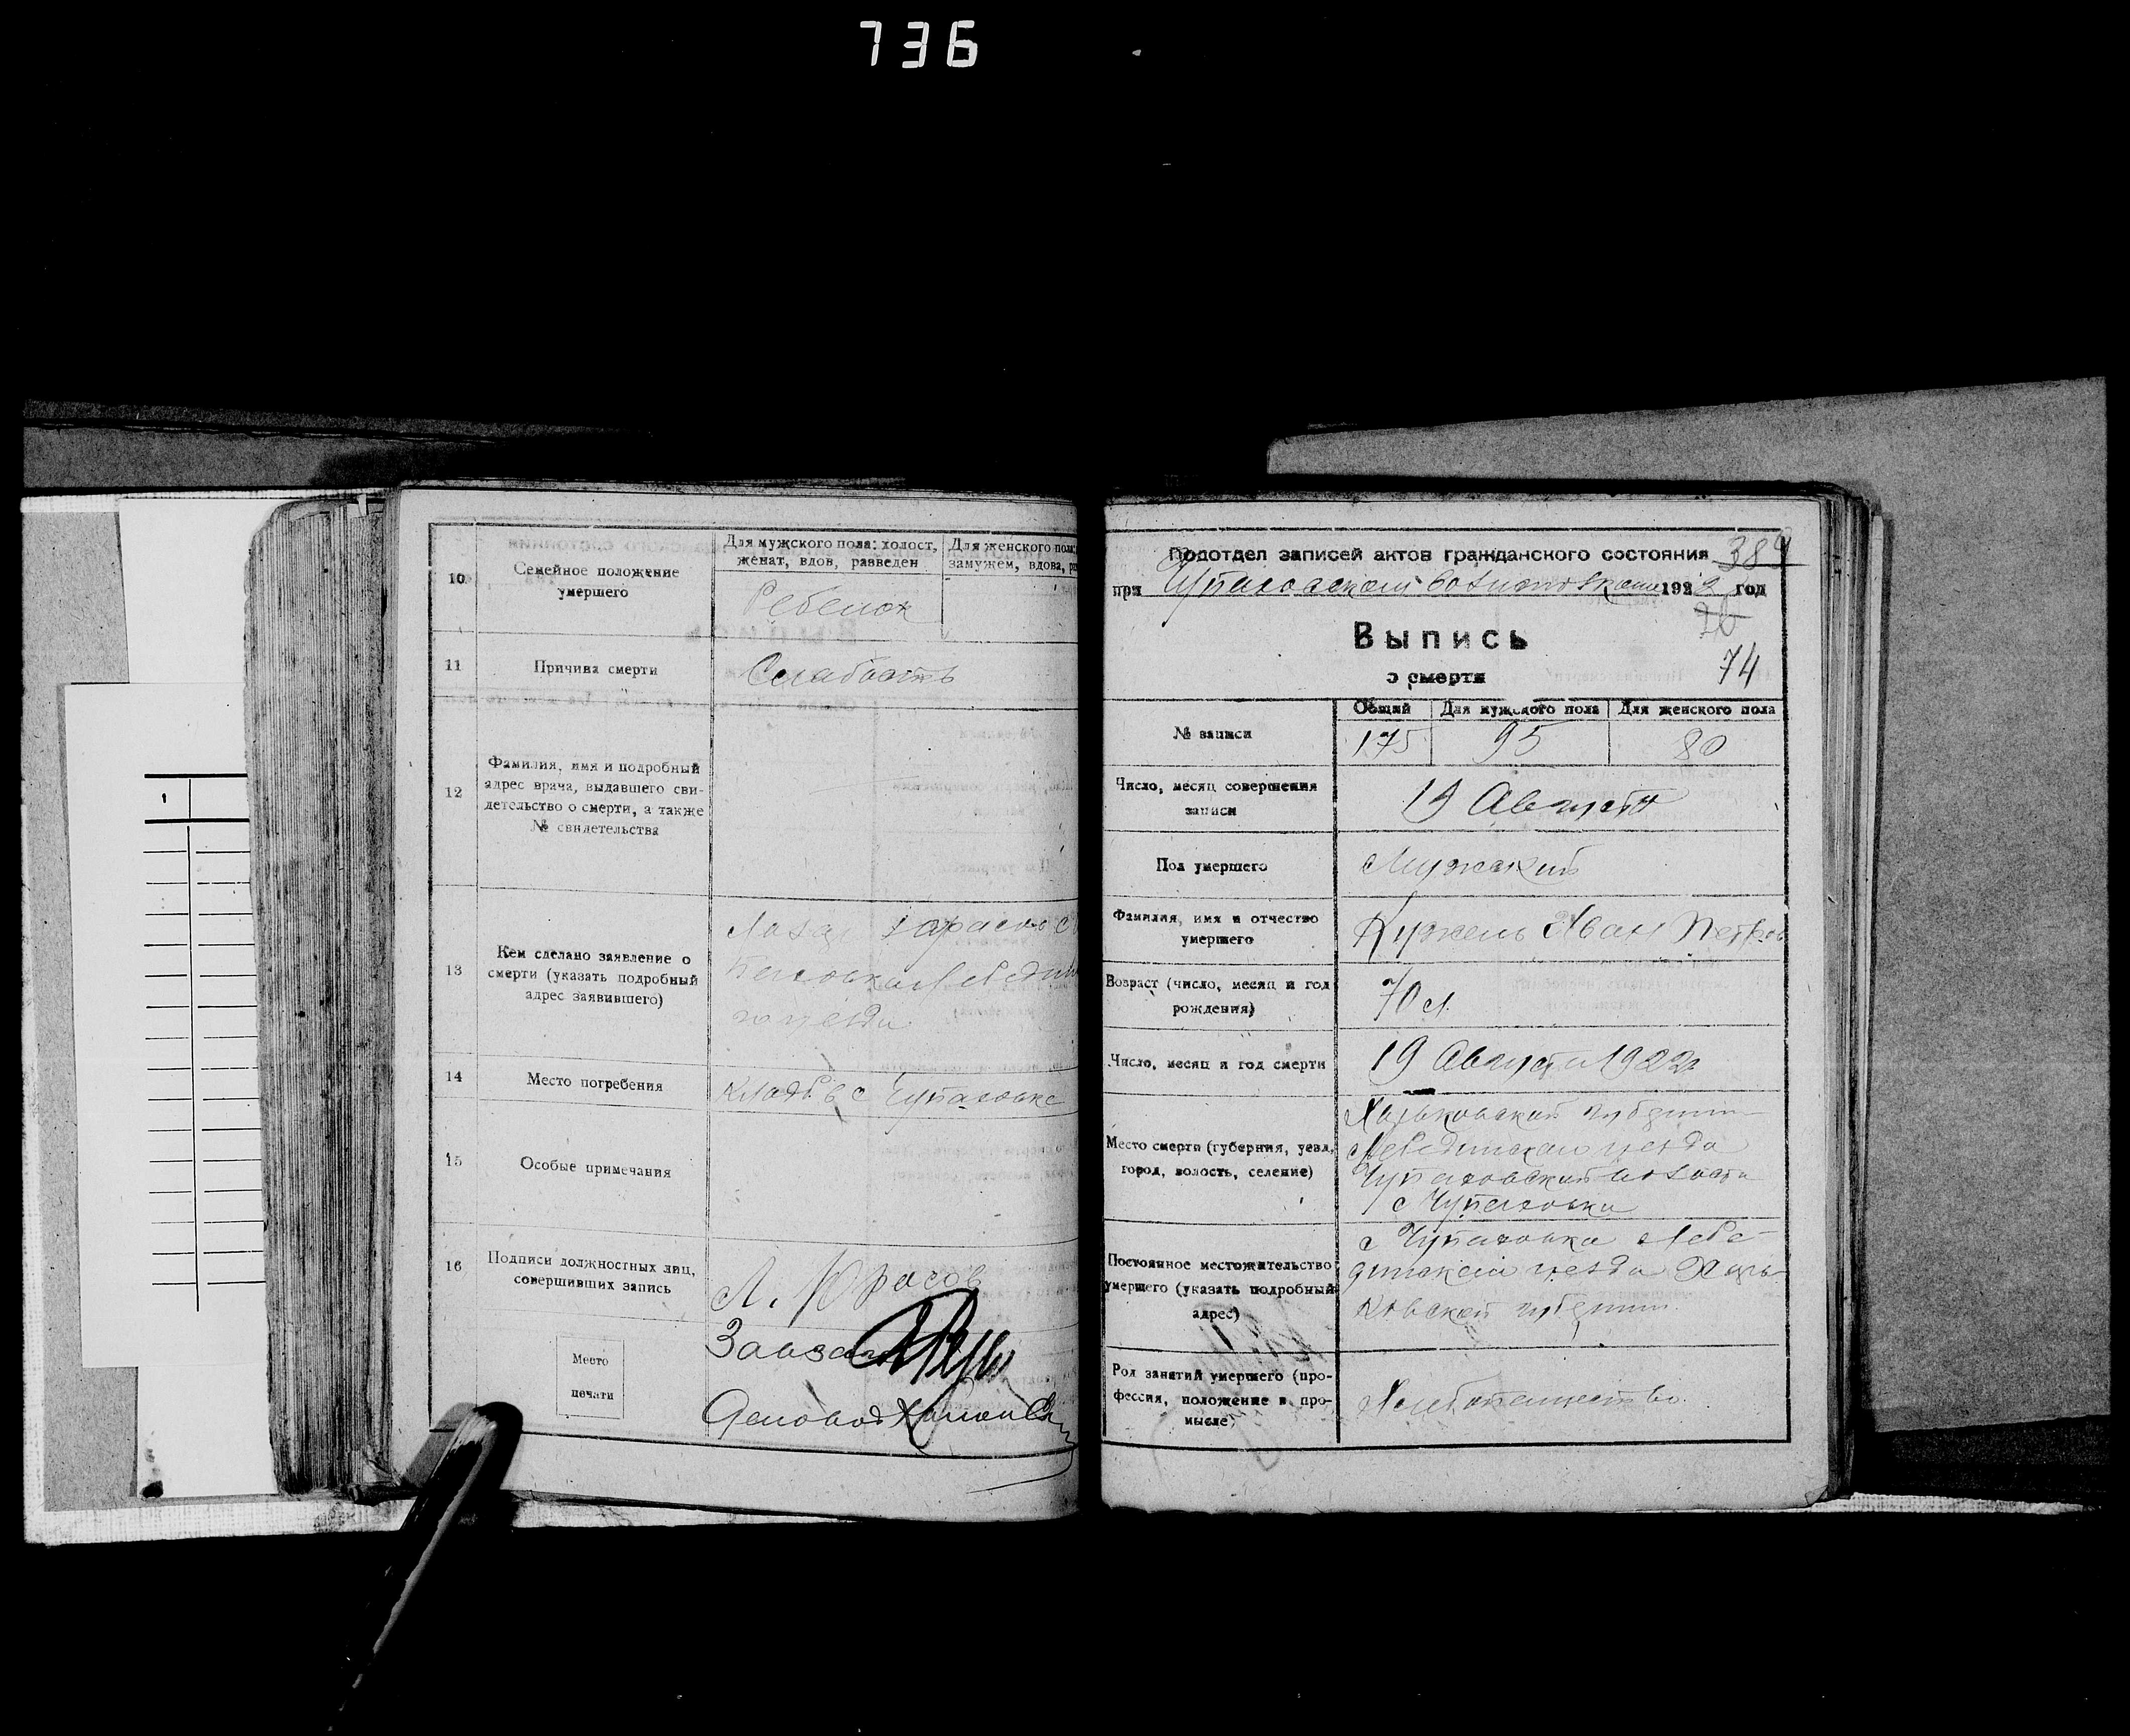 736
10
Семейное положение
умершего
Для мужского пола: холост,
женат, вдов, разведен
Для женского пола:
замужем, вдова,
Ребенок
11
Причина смерти
Слабость
12
Фамилия, имя и подробный
адрес врача, выдавшего сви-
детельство о смерти, а также
№ свидетельства
13
Кем сделано заявление о
смерти (указать подробный
адрес заявившего)
уезда
14
Место погребения
Кладб. в с Чупаховке
15
Особые примечания
16
Подписи должностных лиц,
совершивших запись
Место
печати
1
Подотдел записей актов гражданского состояния
389
при Чупаховском 1922 год
Выпись
о смерти
74
№ записи
Общий
Для мужского пола
Для женского пола
175
95
80
Число, месяц совершения
записи
19 Августа
Пол умершего
Мужский
Фамилия, имя и отчество
умершего
Кужель Иван Петров
Возраст (число, месяц и год
рождения)
70 л.
Число, месяц и год смерти
19 Августа 1922
Место смерти (губерния, уезд,
город, волость, селение)
Харьковской губернии
Лебединского уезда
Чупаховской волости
с Чупаховки
Постоянное местожительство
умершего (указать подробный
адрес)
с Чупаховка Лебе-
динского уезда Харь-
ковской губернии
Род занятий умершего (про-
фессия, положение в про-
мысле)
Хлебопашество.